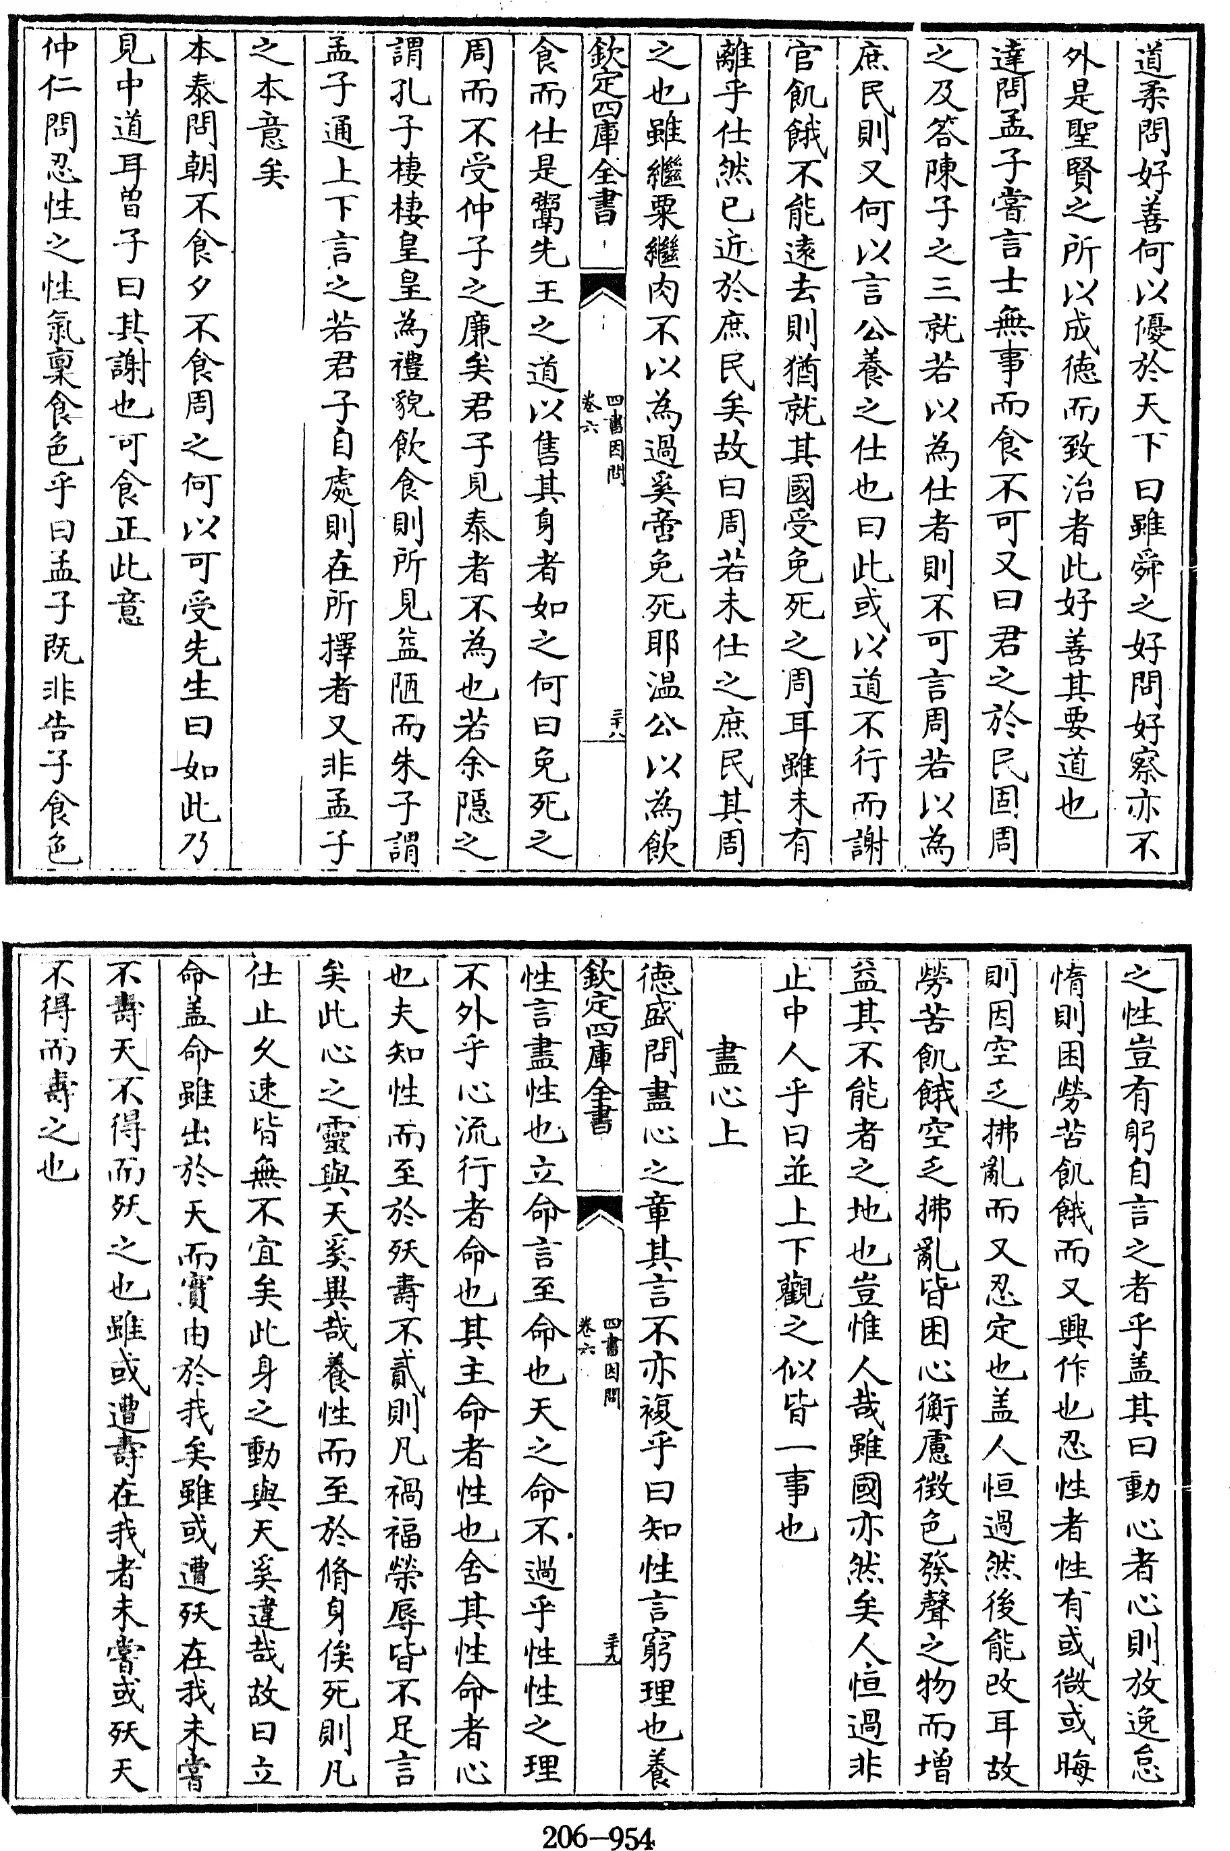 道柔問好善何以優於天下曰雖舜之好問好察亦不
外是聖賢之所以成徳而致治者此好善其要道也
達問孟子嘗言士無事而食不可又曰君之於民固周
之及答陳子之三就若以為仕者則不可言周若以為
庶民則又何以言公養之仕也曰此或以道不行而謝
官飢餓不能遠去則猶就其國受免死之周耳雖未有
離乎仕然已近於庶民矣故曰周若未仕之庶民其周
之也雖繼粟繼肉不以為過奚啻免死耶温公以為飲
欽定四庫全書
四書因問
卷六
三十八
食而仕是鬻先王之道以售其身者如之何曰免死之
周而不受仲子之廉矣君子見泰者不為也若余隠之
謂孔子棲棲皇皇為禮貌飲食則所見益陋而朱子謂
孟子通上下言之若君子自處則在所擇者又非孟子
之本意矣
本泰問朝不食夕不食周之何以可受先生曰如此乃
見中道耳曽子曰其謝也可食正此意
仲仁問忍性之性氣稟食色乎曰孟子既非告子食色
之性豈有躬自言之者乎盖其曰動心者心則放逸怠
惰則困勞苦飢餓而又興作也忍性者性有或微或晦
則因空乏拂亂而又忍定也盖人恒過然後能改耳故
勞苦飢餓空乏拂亂皆困心衡慮徴色發聲之物而増
益其不能者之地也豈惟人哉雖國亦然矣人恒過非
止中人乎曰並上下觀之似皆一事也
盡心上
徳盛問盡心之章其言不亦複乎曰知性言窮理也養
欽定四庫全書
四書因問
卷六
三十九
性言盡性也立命言至命也天之命不過乎性性之理
不外乎心流行者命也其主命者性也舍其性命者心
也夫知性而至於殀壽不貳則凡禍福榮辱皆不足言
矣此心之靈與天奚異哉養性而至於脩身俟死則凡
仕止久速皆無不宜矣此身之動與天奚違哉故曰立
命盖命雖出於天而實由於我矣雖或遭殀在我未嘗
不壽天不得而殀之也雖或遭壽在我者未嘗或殀天
不得而壽之也
206-954